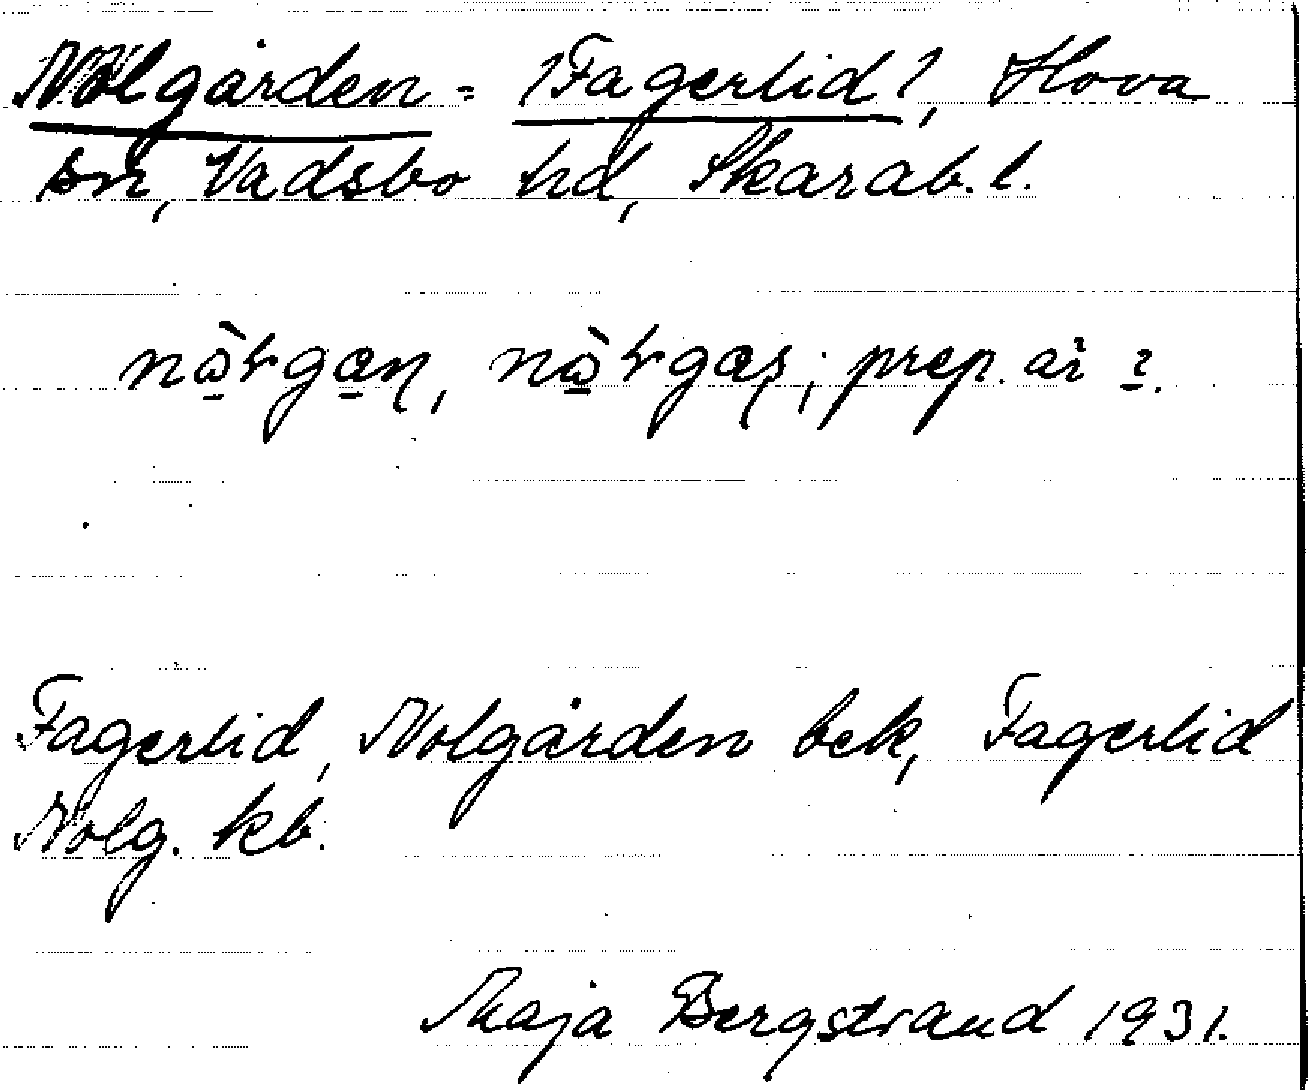 Nolgården = ?Fagerlid?, Hova
sn, Vadsbo hd, Skarab. l.
prep. är
Fagerlid, Nolgården bek, Fagerlid
Nolg. kb.
Maja Bergstrand 1931.